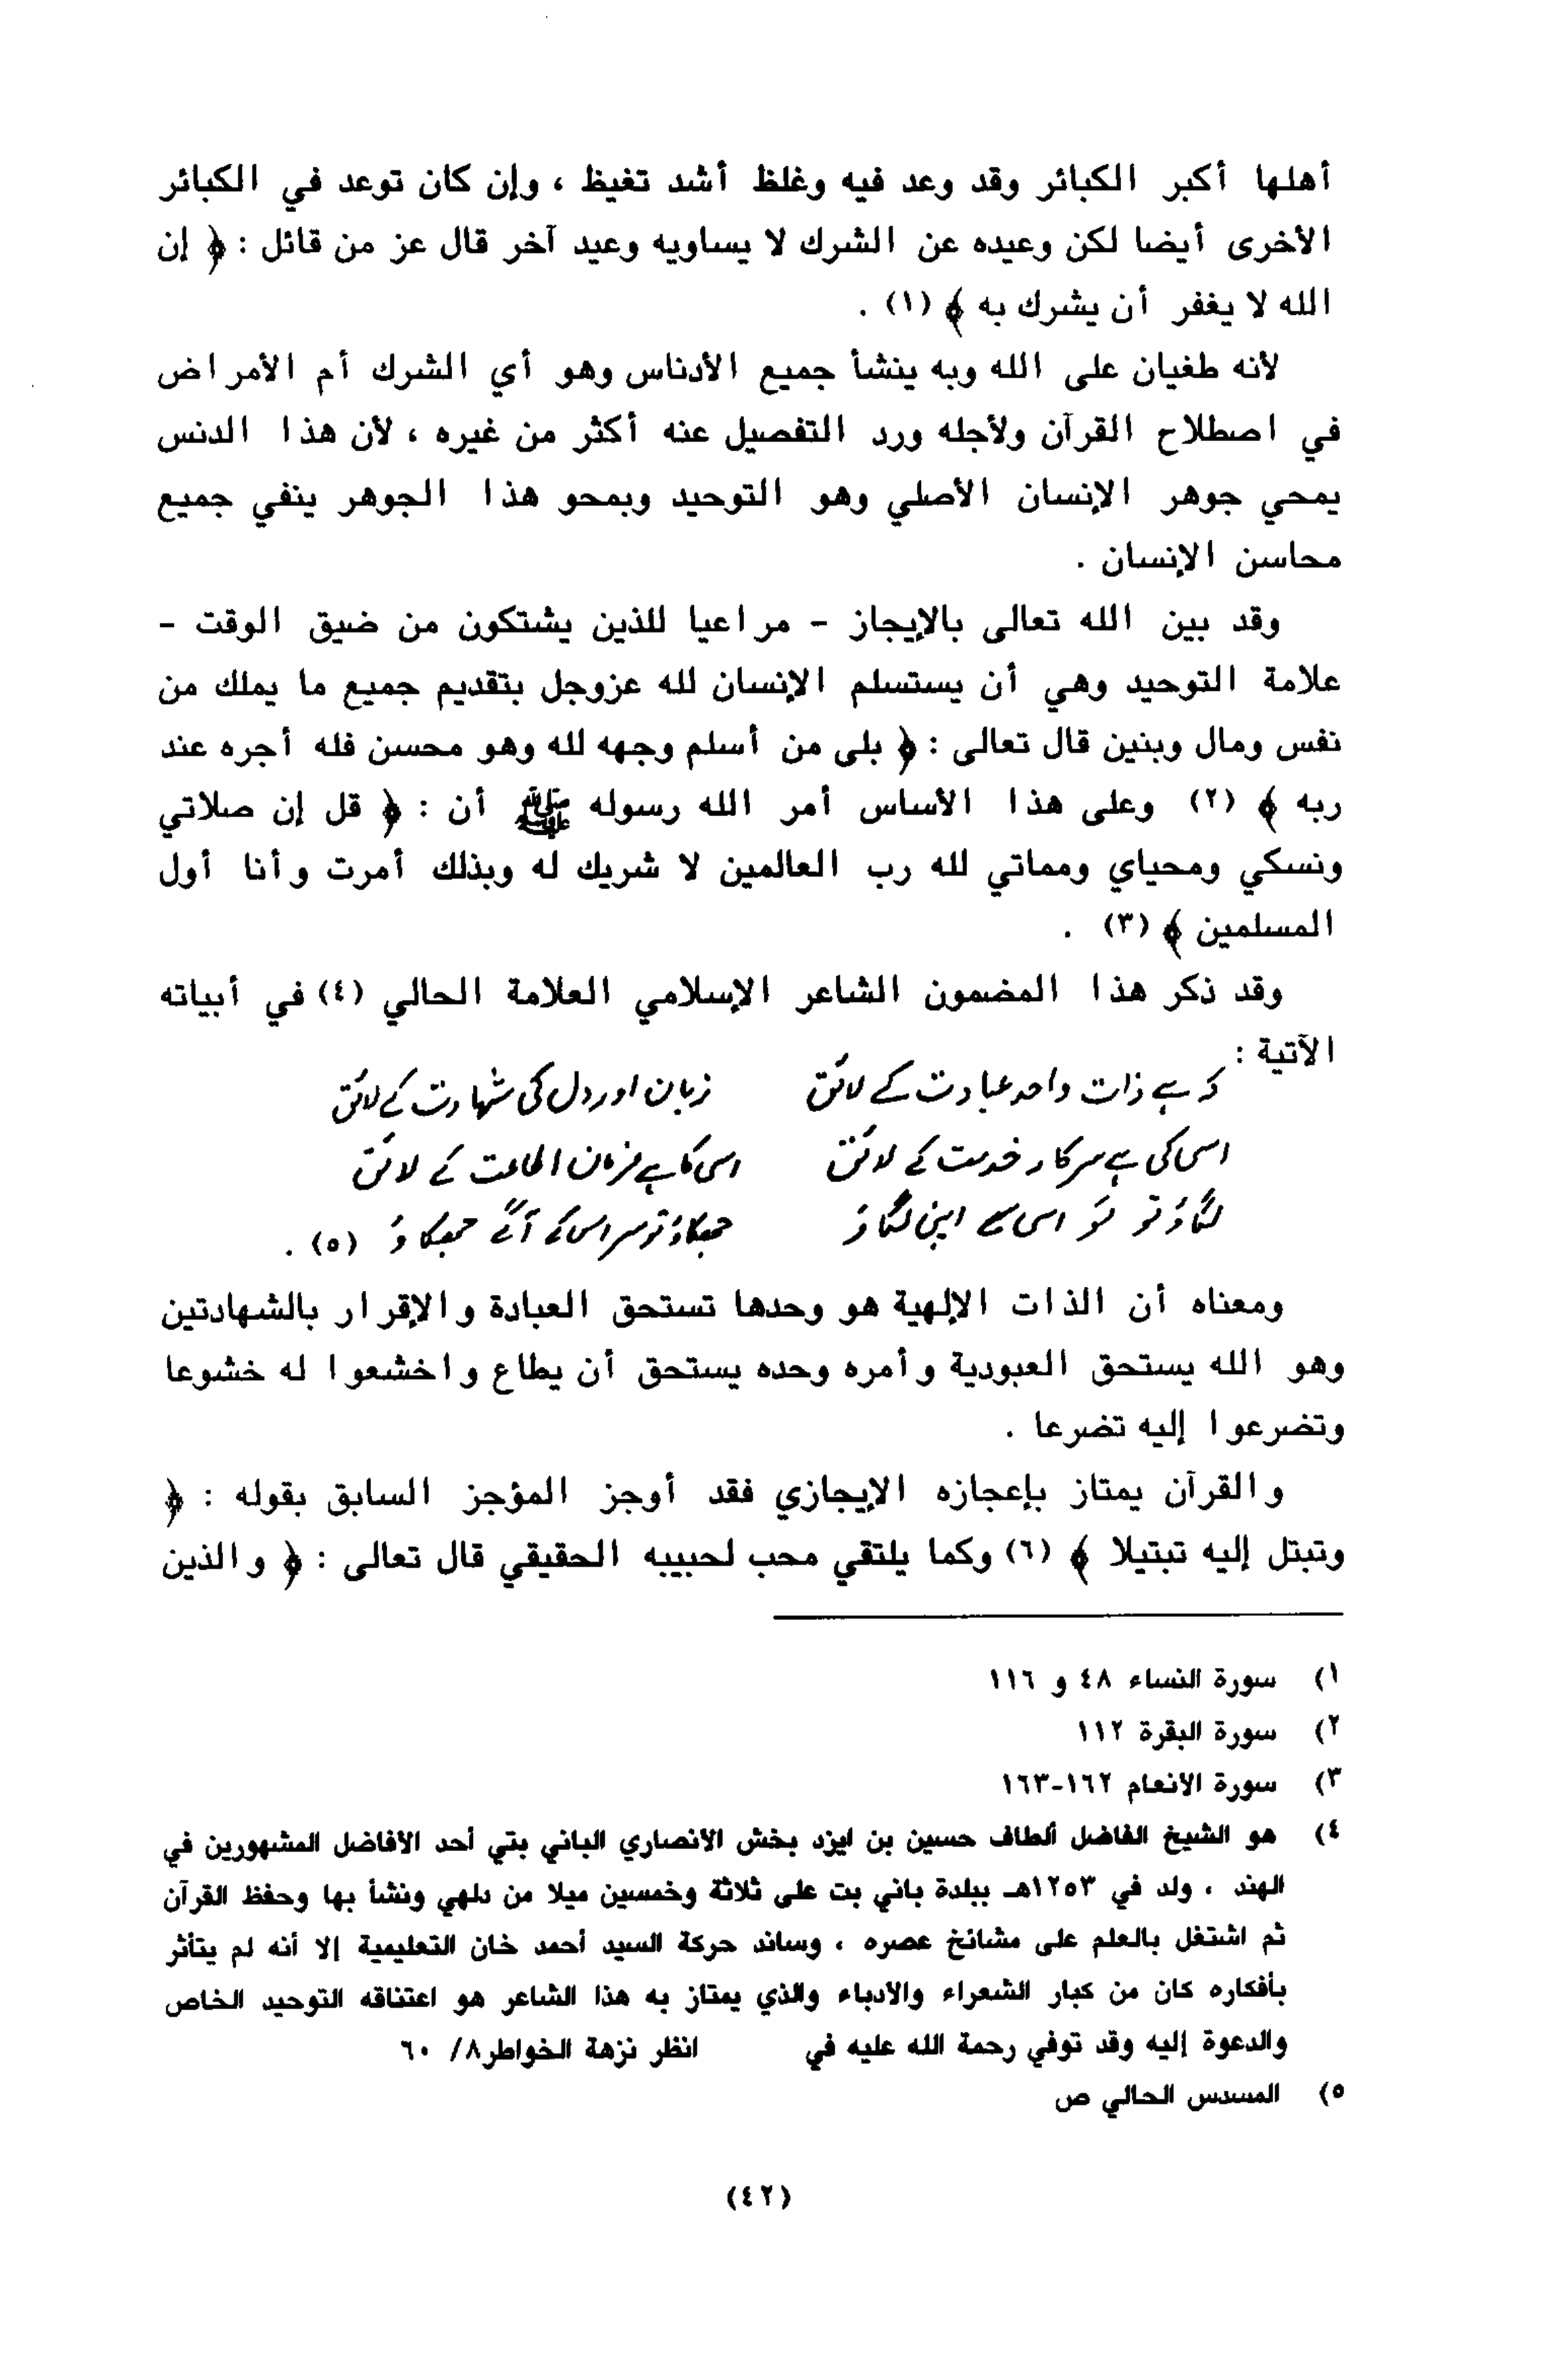 أهلها أكبر الكبائر وقد وعد فيه وغلظ أشد تغيظ ، وإن كان توعد في الكبائر
الأخرى أيضا لكن وعيده عن الشرك لا يساويه وعيد آخر قال عز من قائل : ﴿ إن
الله لا يغفر أن يشرك به ﴾ (١) .
لأنه طغيان على الله وبه ينشأ جميع الأدناس وهو أي الشرك أم الأمراض
في اصطلاح القرآن ولأجله ورد التفصيل عنه أكثر من غيره ، لأن هذا الدنس
يمحي جوهر الإنسان الأصلي وهو التوحيد وبمحو هذا الجوهر ينفي جميع
محاسن الإنسان .
وقد بين الله تعالى بالإيجاز - مراعيا للذين يشتكون من ضيق الوقت -
علامة التوحيد وهي أن يستسلم الإنسان لله عزوجل بتقديم جميع ما يملك من
نفس ومال وبنين قال تعالى : ﴿ بلى من أسلم وجهه لله وهو محسن فله أجره عند
ربه ﴾ (٢) وعلى هذا الأساس أمر الله رسوله ﷺ أن : ﴿ قل إن صلاتي
ونسكي ومحياي ومماتي لله رب العالمين لا شريك له وبذلك أمرت وأنا أول
المسلمين ﴾ (٣) .
وقد ذكر هذا المضمون الشاعر الإسلامي العلامة الحالي (٤) في أبياته
الآتية :
کہ ہے ذات واحد عبادت کے لائق زبان اور دل کی شہادت کے لائق
اسی کی ہے سرکار خدمت کے لائق اسی کا ہے فرمان اطاعت کے لائق
لگاؤ تو لو اسی سے اپنی لگاؤ جھکاؤ تو سر اس کے آگے جھکاؤ (٥) .
ومعناه أن الذات الإلهية هو وحدها تستحق العبادة والإقرار بالشهادتين
وهو الله يستحق العبودية وأمره وحده يستحق أن يطاع واخشعوا له خشوعا
وتضرعوا إليه تضرعا .
والقرآن يمتاز بإعجازه الإيجازي فقد أوجز المؤجز السابق بقوله : ﴿
وتبتل إليه تبتيلا ﴾ (٦) وكما يلتقي محب لحبيبه الحقيقي قال تعالى : ﴿ والذين
١) سورة النساء ٤٨ و ١١٦
٢) سورة البقرة ١١٢
٣) سورة الانعام ١٦٢-١٦٣
٤) هو الشيخ الفاضل ألطاف حسين بن ايزد بخش الانصاري الباني بتي أحد الأفاضل المشهورين في
الهند ، ولد في ١٢٥٣هـ ببلدة باني بت على ثلاثة وخمسين ميلا من دلهي ونشأ بها وحفظ القرآن
ثم اشتغل بالعلم على مشائخ عصره ، وساند حركة السيد أحمد خان التعليمية إلا أنه لم يتأثر
بأفكاره كان من كبار الشعراء والادباء والذي يمتاز به هذا الشاعر هو اعتناقه التوحيد الخاص
والدعوة إليه وقد توفي رحمة الله عليه في انظر نزهة الخواطر٨/ ٦٠
٥) المسدس الحالي ص
(٤٢)